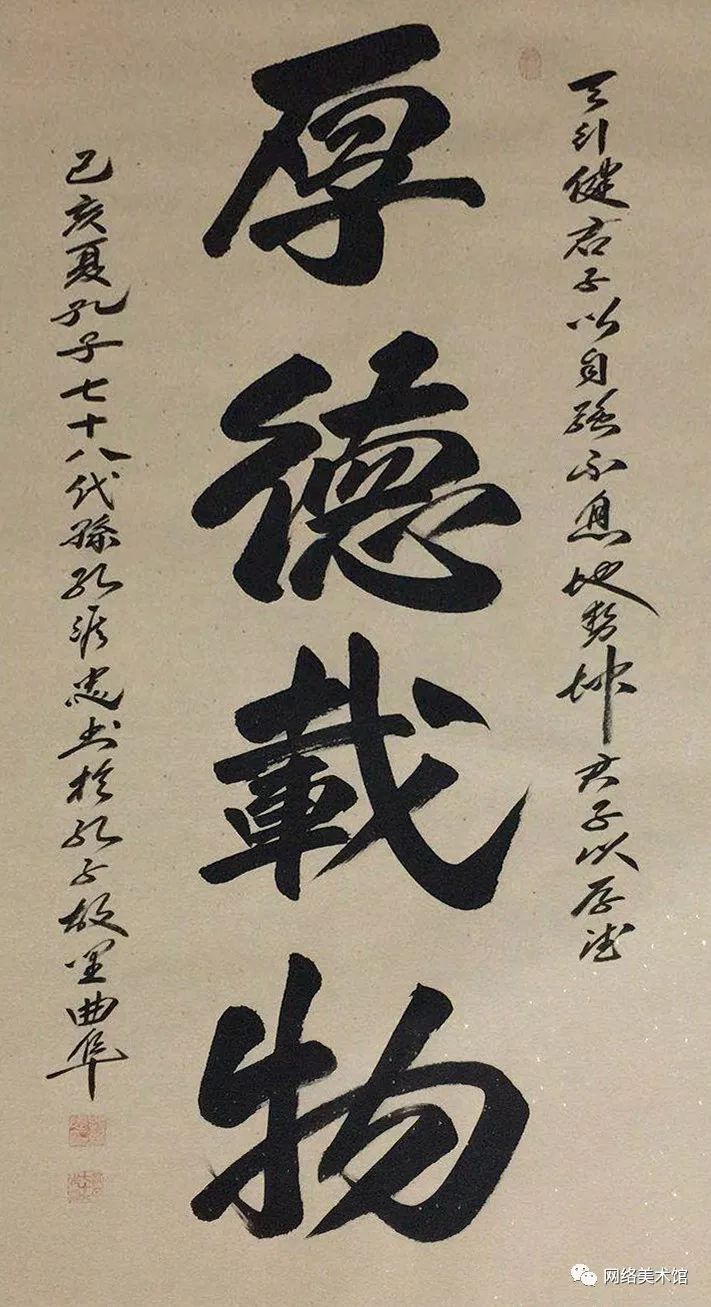 天行健君子以自強不息地勢坤君子以厚德
厚德載物
己亥夏孔子七十八代孫孔淤忠书於孔子故里曲阜
网络美术馆